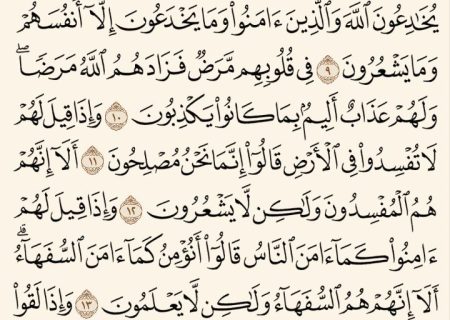 يُخَٰدِعُونَ ٱللَّهَ وَٱلَّذِينَ ءَامَنُوا۟ وَمَا يَخْدَعُونَ إِلَّآ أَنفُسَهُمْ
وَمَا يَشْعُرُونَ ٩ فِى قُلُوبِهِم مَّرَضٌ فَزَادَهُمُ ٱللَّهُ مَرَضًا ۖ
وَلَهُمْ عَذَابٌ أَلِيمٌۢ بِمَا كَانُوا۟ يَكْذِبُونَ ١٠ وَإِذَا قِيلَ لَهُمْ
لَا تُفْسِدُوا۟ فِى ٱلْأَرْضِ قَالُوٓا۟ إِنَّمَا نَحْنُ مُصْلِحُونَ ١١ أَلَآ إِنَّهُمْ
هُمُ ٱلْمُفْسِدُونَ وَلَٰكِن لَّا يَشْعُرُونَ ١٢ وَإِذَا قِيلَ لَهُمْ
ءَامِنُوا۟ كَمَآ ءَامَنَ ٱلنَّاسُ قَالُوٓا۟ أَنُؤْمِنُ كَمَآ ءَامَنَ ٱلسُّفَهَآءُ ۗ
أَلَآ إِنَّهُمْ هُمُ ٱلسُّفَهَآءُ وَلَٰكِن لَّا يَعْلَمُونَ ١٣ وَإِذَا لَقُوا۟